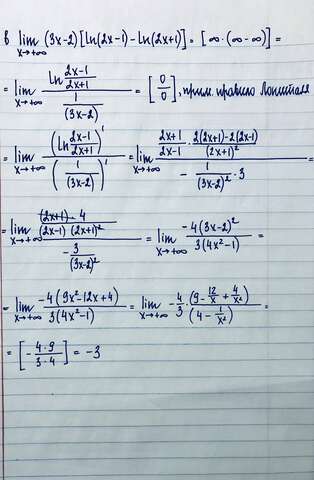 в lim x→+∞ (3x-2)[ln(2x-1)-ln(2x+1)] = [∞·(∞-∞)] =
= lim x→+∞ (ln (2x-1)/(2x+1)) / (1/(3x-2)) = [0/0], прим. правило Лопиталя
= lim x→+∞ (ln (2x-1)/(2x+1))' / (1/(3x-2))' = lim x→+∞ ((2x+1)/(2x-1) · (2(2x+1)-2(2x-1))/(2x+1)²) / (- 1/(3x-2)² · 3) =
= lim x→+∞ ((2x+1)·4 / (2x-1)(2x+1)²) / (- 3/(3x-2)²) = lim x→+∞ -4(3x-2)² / 3(4x²-1) =
= lim x→+∞ -4(9x²-12x+4) / 3(4x²-1) = lim x→+∞ -4/3 · (9 - 12/x + 4/x²) / (4 - 1/x²) =
= [- 4·9 / 3·4] = -3